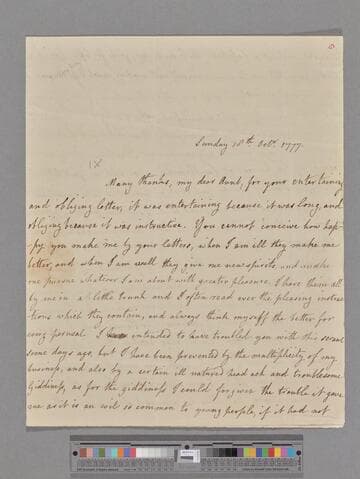 Sunday 28th Octr. 1777.
Many thanks, my dear Aunt, for your entertaining
and obliging letter, it was entertaining because it was long, and
obliging because it was instructive. You cannot conceive how hap-
py you make me by your letters, when I am ill they make me
better, and when I am well they give me new spirits, and make
me pursue whatever I am about with greater pleasure. I have them all
by me in a little trunk and I often read over the pleasing instruc
tions which they contain, and always think myself the better for
every perusal. I intended to have troubled you with this scrawl
some days ago, but I have been prevented by the multiplicity of my
business, and also by a certain ill natured head ach and troublesome
Giddiness, as for the giddiness I could forgive the trouble it gave
me as it is an evil so common to young people, if it had not